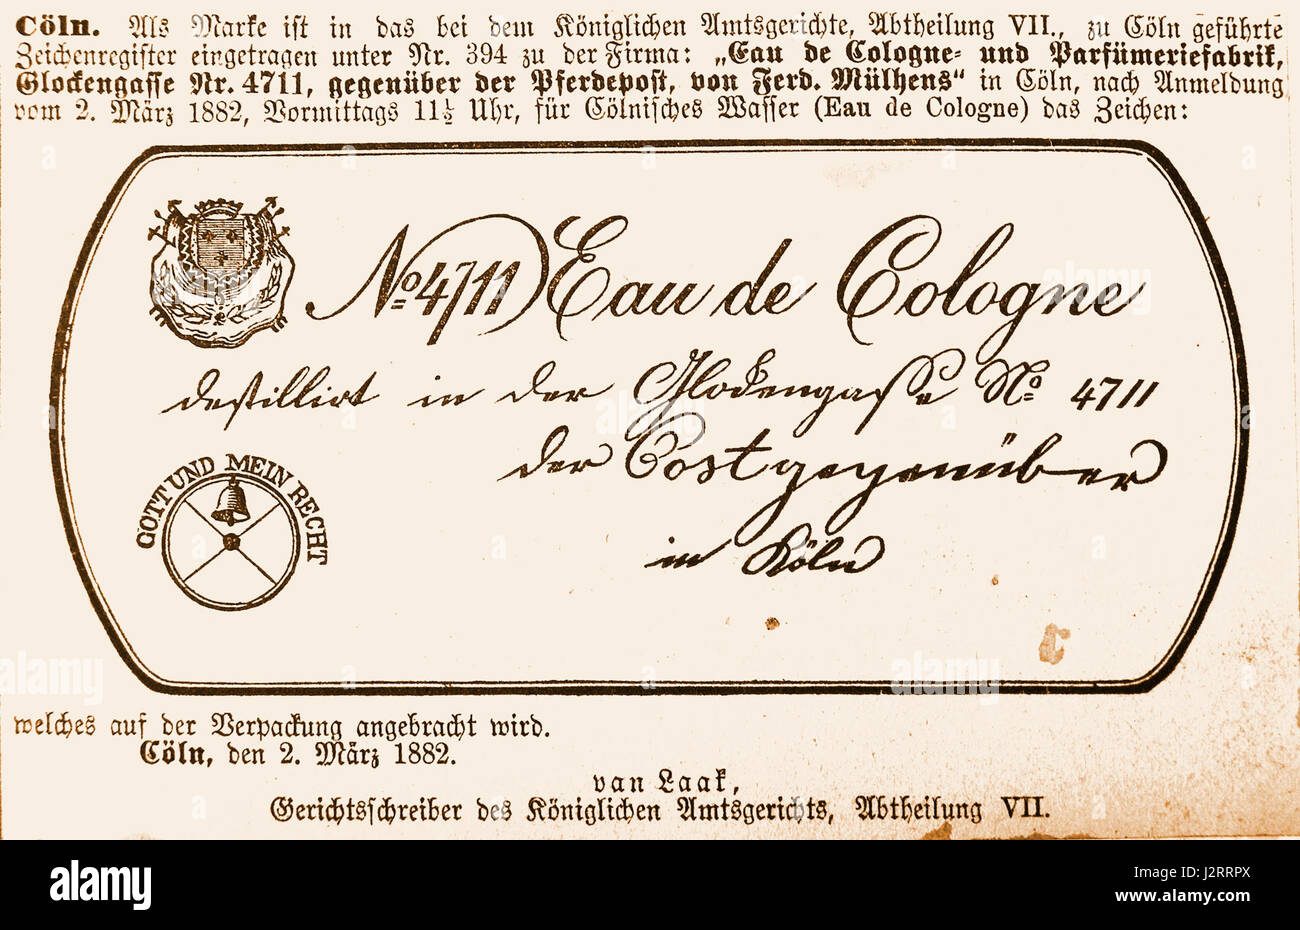 Cöln. Als Marke ist in das bei dem Königlichen Amtsgerichte, Abtheilung VII., zu Cöln geführte
Zeichenregister eingetragen unter Nr. 394 zu der Firma: „Eau de Cologne- und Parfümeriefabrik,
Glockengasse Nr. 4711, gegenüber der Pferdepost, von Ferd. Mülhens“ in Cöln, nach Anmeldung
vom 2. März 1882, Vormittags 11½ Uhr, für Cölnisches Wasser (Eau de Cologne) das Zeichen:
No. 4711 Eau de Cologne
destillirt in der Glockengasse No. 4711
der Post gegenüber
in Köln
GOTT UND MEIN RECHT
welches auf der Verpackung angebracht wird.
Cöln, den 2. März 1882.
van Laak,
Gerichtsschreiber des Königlichen Amtsgerichts, Abtheilung VII.
alamy
alamy stock photo
J2RRPX
www.alamy.com